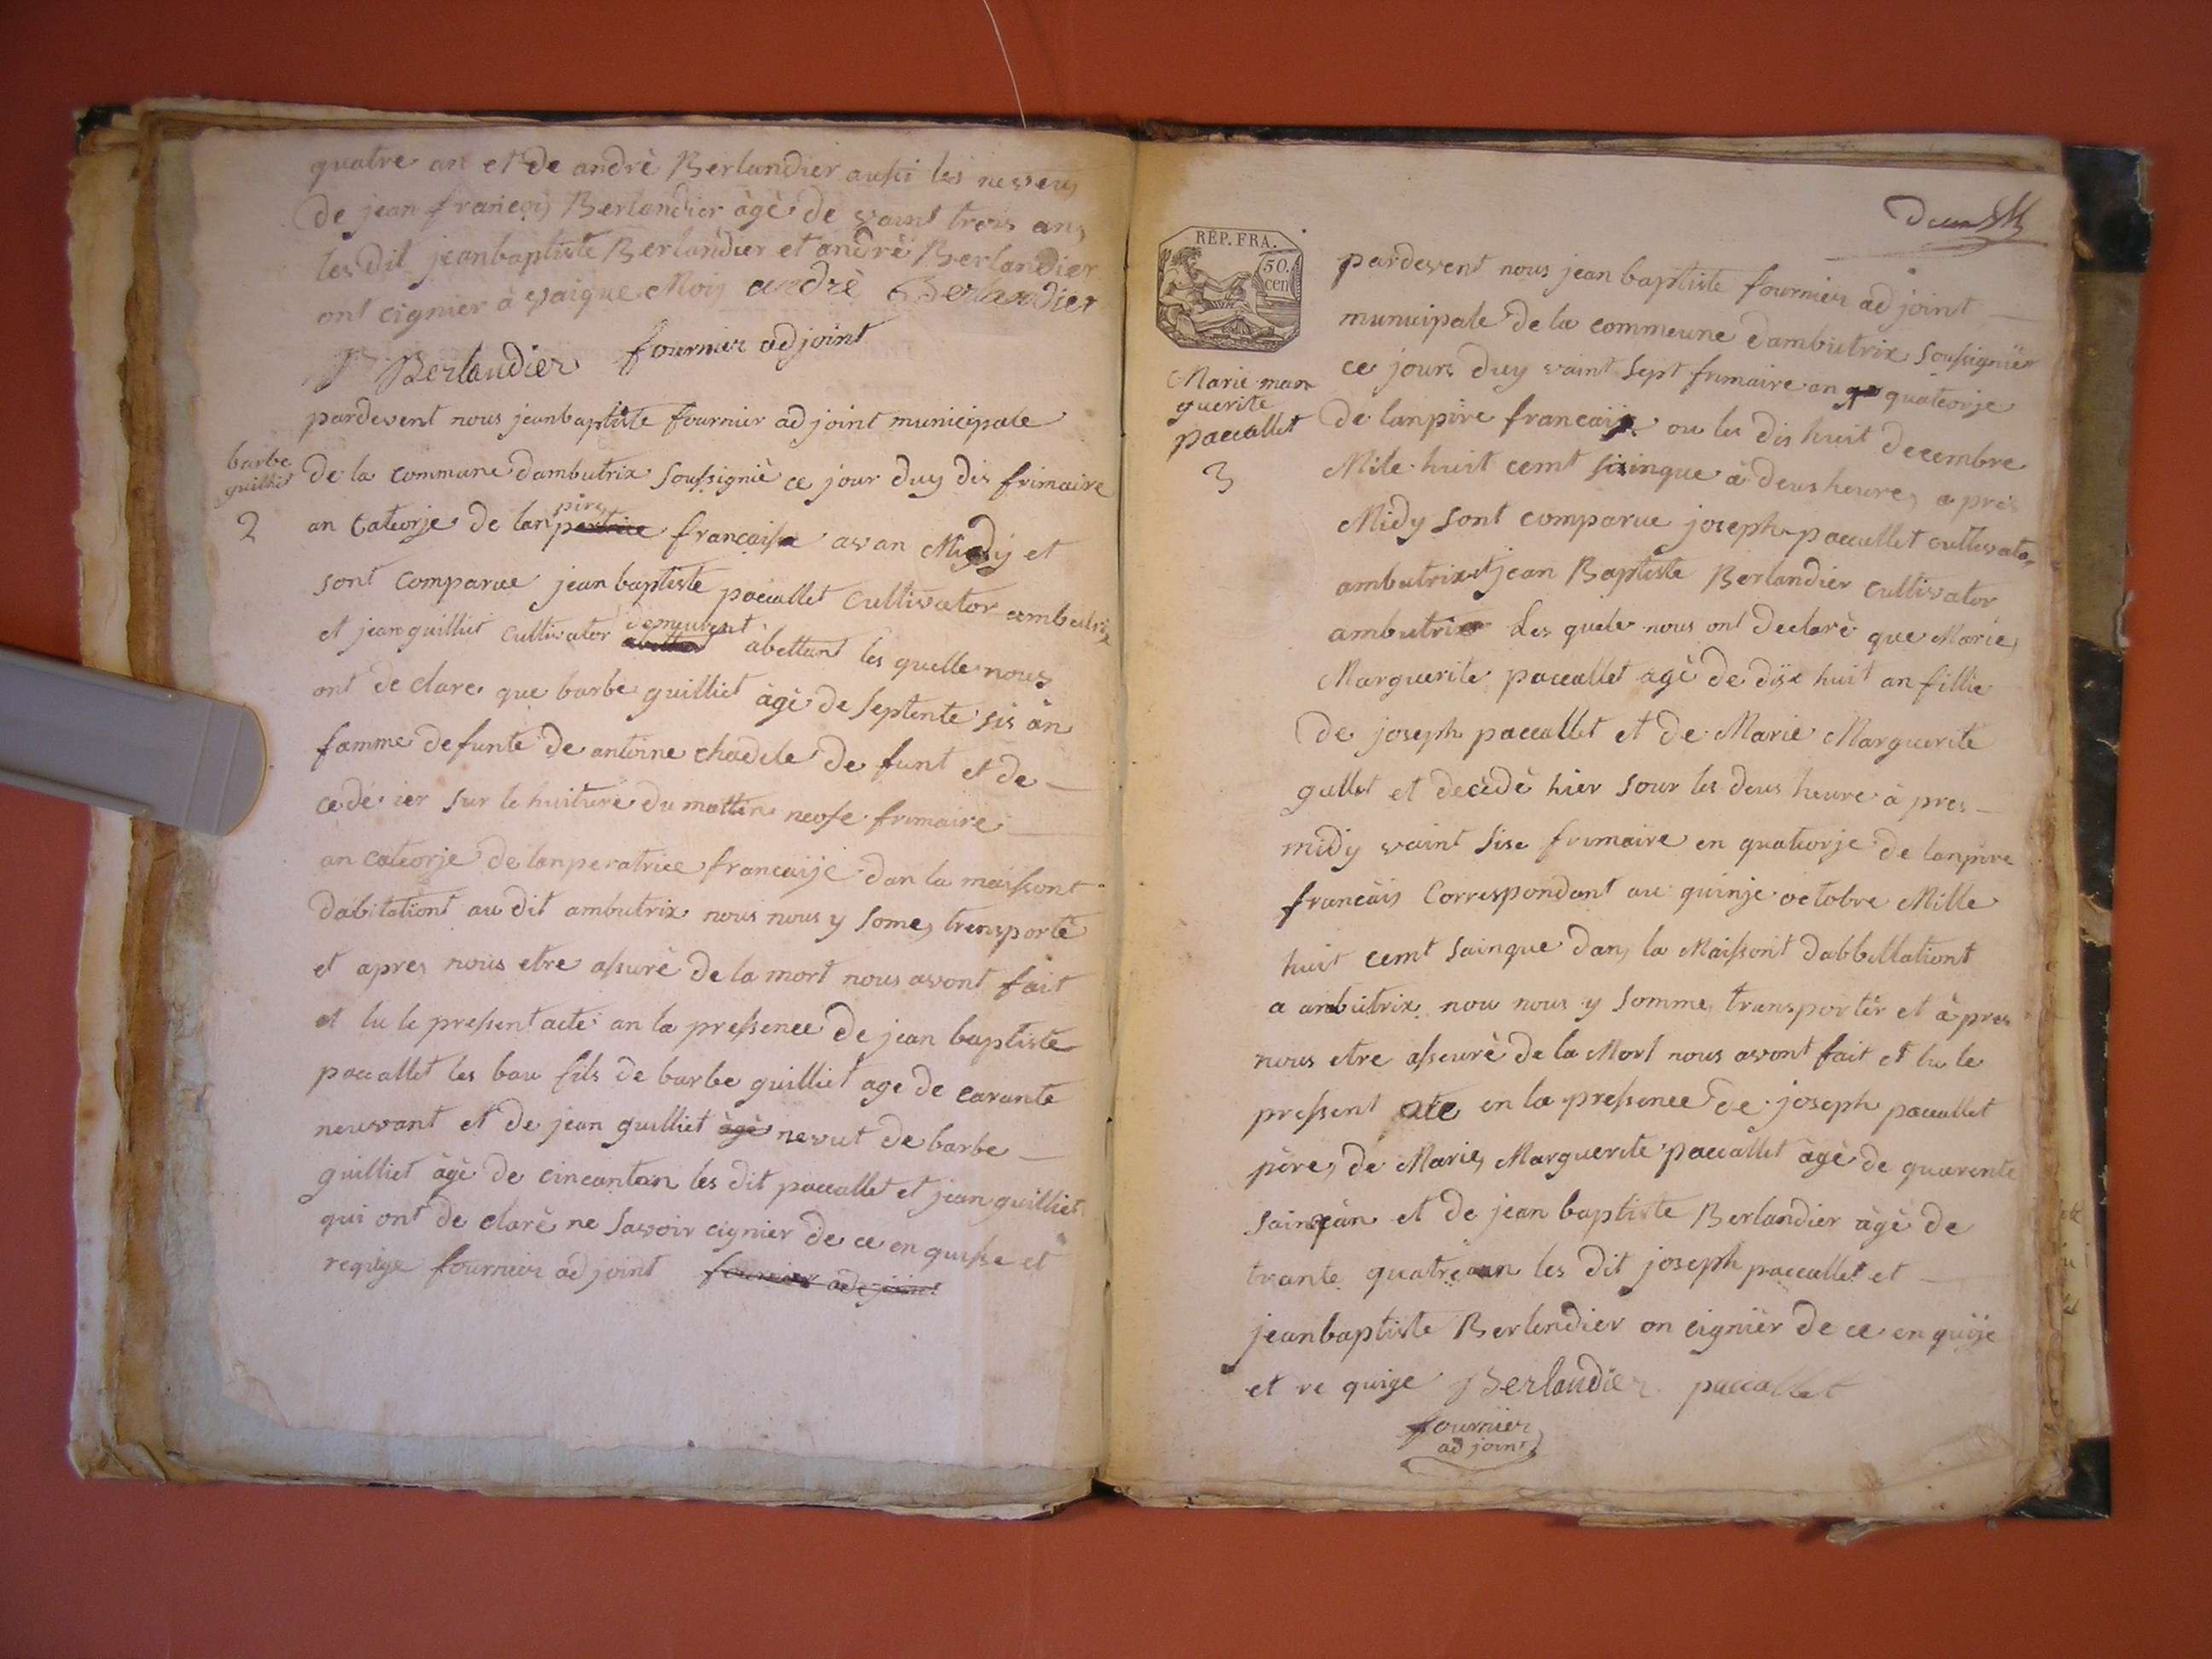 quatre an et de andrè Berlandier aussi les neveus
de jean françois Berlandier àgè de vaint trois ans
les dit jeanbaptiste Berlandier et andrè Berlandier
ont cignier à vaique Moij andrè Berlandier
Berlandier fournier adjoint
pardevent nous jeanbaptiste fournier adjoint municipale
barbe
guilliet
2
de la commune dambutrix soussigniè ce jour duy dis frimaire
pire
an cateorje de lanperatrice francaisse avan Midy et
sont comparue jean baptiste paccallet cultivator ambutrix
demeurent
et jean guilliet cultivator abettant les quelle nous
ont de clare que barbe guilliet àgè de septente sis àn
famme defunte de antoine chadele de funt et de
cedé ier sur le huiture du mattin neofe frimaire
an cateorje de lanperatrice francaije dan la maissont
dabitationt au dit ambutrix nous nous y somes trensportè
et apres nous etre assurè de la mort nous avont fait
et lu le pressent acte an la pressence de jean baptiste
paccallet les bau fils de barbe guilliet age de carante
neuvant et de jean guilliet àgè nevut de barbe
guilliet àgè de cincantan les dit paccallet et jean guilliet
qui ont de clarè ne savoir cignier de ce en quisse et
reqige fournier adjoint fournier adejoint
RÉP. FRA.
50.
cen
Marie mar
guerite
paccallet
3
pardevent nous jean baptiste fournier adjoint
municipale de la commeune dambutrix soussignièr
ce jours duy vaint sept frimaire an quateorje
de lanpire francais ou les dis huit decembre
Mile huit cemt sainque à deus heures a près
Midy sont comparue joseph paccallet cultivator
ambutrix et jean Baptiste Berlandier cultivator
ambutrix Les quele nous ont declarè que Marie
Marguerite paccallet agè de dix huit an fillie
de joseph paccallet et de Marie Marguerite
gullet et decèdè hier sour les deus heure à pres
midy vaint sise frimaire en quateorje de lanpire
francàis Correspondant au quinje octobre Mille
huit cemt sainque dans la Maissont dabbitationt
a ambutrix nou nous y somme transportér et à pres
nous etre asseurè de la Mort nous avont fait et lu le
pressent ate en la pressence de joseph paccallet
père de Marie Marguerite paccàllet àgè de quarente
sainqàn et de jean baptiste Berlandier àgè de
trante quatre an les dit joseph paccallet et
jeanbaptiste Berlendier on cignièr de ce en quije
et re quige Berlandier paccallet
fournier
adjoint